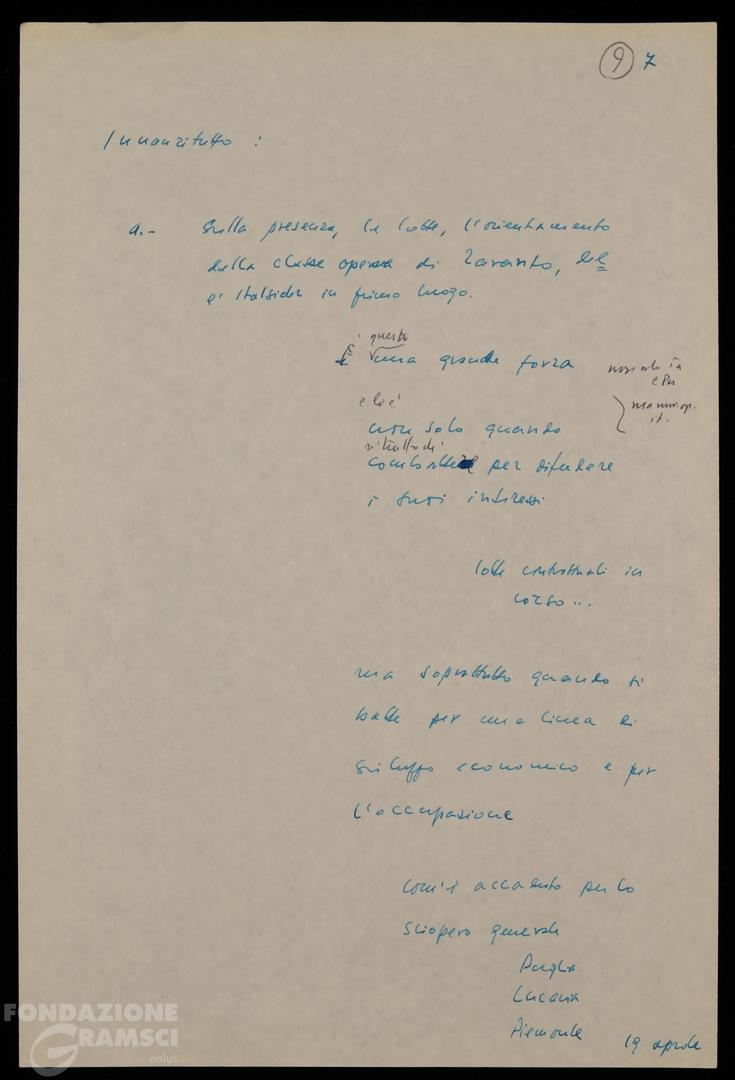 9 7
Innanzitutto :
a.- Sulla presenza, le lotte, l'orientamento
della classe operaia di Taranto, del
l'Italsider in primo luogo.
questa
È una grande forza
non solo in
e cioè
non solo quando
si tratta di
combattere per difendere
i suoi interessi
lotte contrattuali in
corso...
ma soprattutto quando si
batte per una linea di
sviluppo economico e per
l'occupazione
com'è accaduto per lo
sciopero generale
Puglia
Lucania
Piemonte 19 aprile
FONDAZIONE
GRAMSCI
onlus